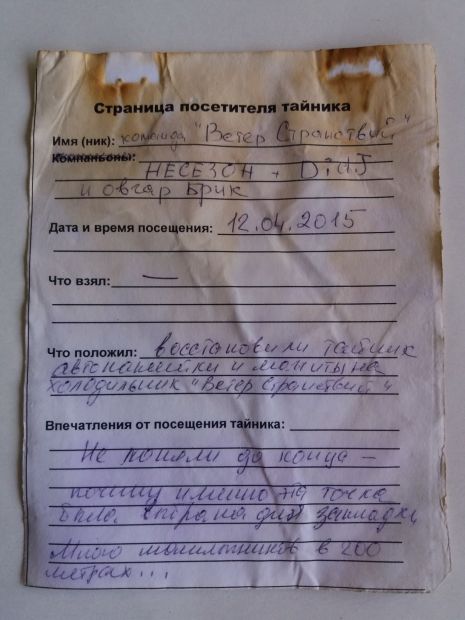 Страница посетителя тайника
Имя (ник): команда "Ветер Странствий"
Компаньоны:
НЕСЕЗОН + DiUJ
и овчар Брик
Дата и время посещения: 12.04.2015
Что взял: —
Что положил: восстановили тайник
автонаклейки и магниты на
холодильник "Ветер Странствий"
Впечатления от посещения тайника:
Не поняли до конца –
почему именно эта точка
была выбрана для закладки
Много могильников в 200
метрах...